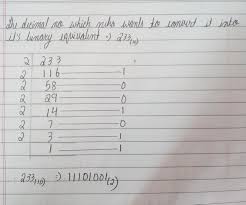 The decimal no which niko wants to convert it into
its binary equivalent => 233(10)
2 | 233
2 | 116 — 1
2 | 58 — 0
2 | 29 — 0
2 | 14 — 1
2 | 7 — 0
2 | 3 — 1
1 — 1
233(10) => 11101001(2)